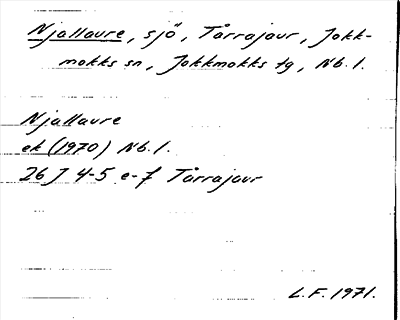 Njallaure, sjö, Tårrajaur, Jokk-
mokks sn, Jokkmokks tg, Nb. l.
Njallaure
ek (1970) Nb. l.
26 J 4-5 e-f Tårrajaur
L.F. 1971.